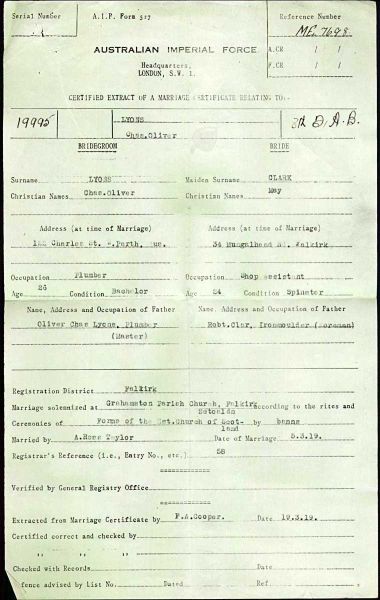 Serial Number A.I.F. Form 527 Reference Number
ME 7698
AUSTRALIAN IMPERIAL FORCE A.CR / /
Headquarters, F.CR / /
LONDON, S.W. 1.
CERTIFIED EXTRACT OF A MARRIAGE CERTIFICATE RELATING TO:-
19995 LYONS
Chas.Oliver
BRIDEGROOM BRIDE
Surname LYONS Maiden Surname CLARK
Christian Names Chas.Oliver Christian Names May
Address (at time of Marriage) Address (at time of Marriage)
Charles St. Perth, Aus. 34 Mungalhead Rd. Falkirk
Occupation Plumber Occupation Shop assistant
Age 26 Condition Bachelor Age 24 Condition Spinster
Name, Address and Occupation of Father Name, Address and Occupation of Father
Oliver Chas Lyons, Plumber Robt.Clar, Ironmoulder (foreman)
(Master)
Registration District Falkirk
Marriage solemnized at Grahamston Parish Church, Falkirk according to the rites and
Ceremonies of Forms of the Est.Church of Scot- by banns
land
Married by A.Ross Taylor Date of Marriage 5.3.19.
Registrar's Reference (i.e., Entry No., etc.) 58
============
Verified by General Registry Office
============
Extracted from Marriage Certificate by F.A.Cooper. Date 19.3.19.
Certified correct and checked by
" " " "
Checked with Records Date
fence advised by List No. Dated Ref.